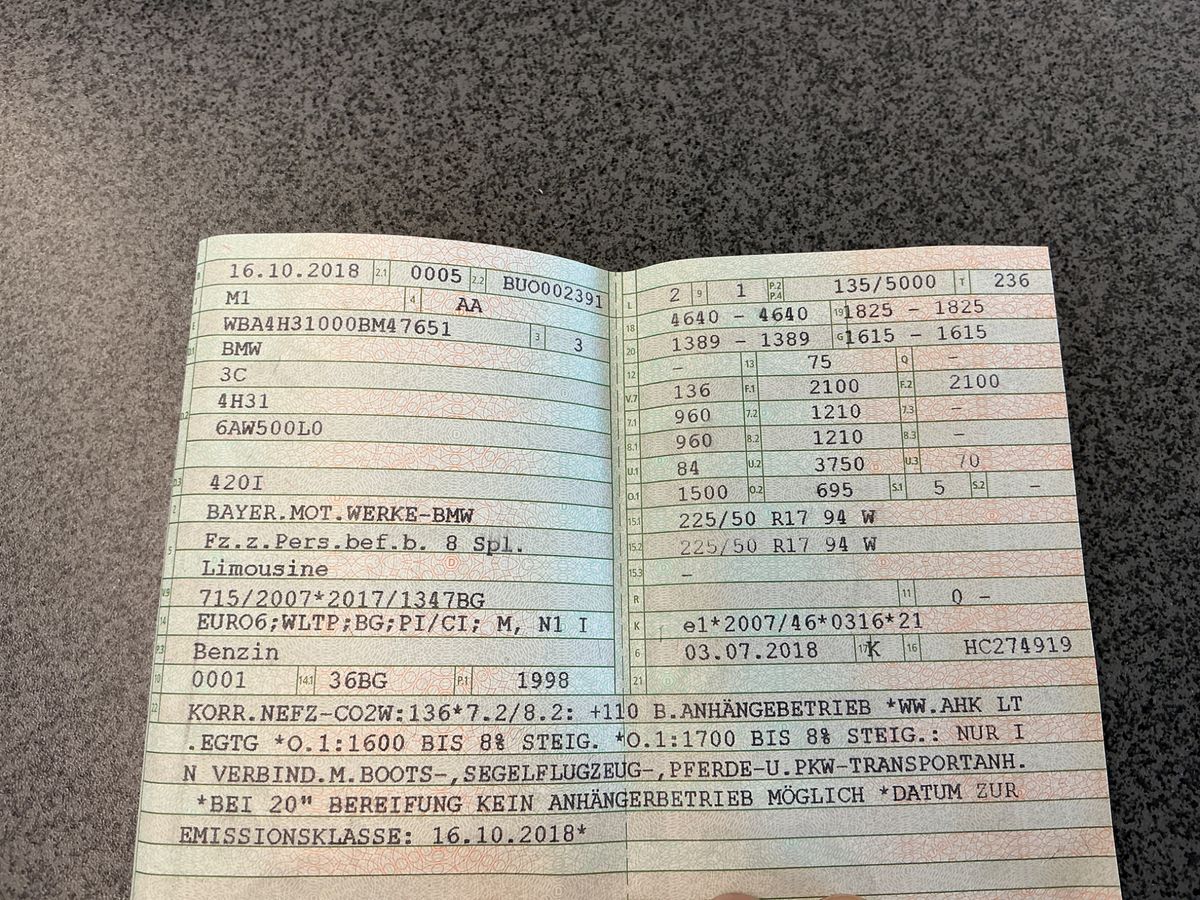 B 16.10.2018 2.1 0005 2.2 BUO002391
M1 4 AA
E WBA4H31000BM47651 3 3
BMW
3C
4H31
6AW500L0
420I
BAYER.MOT.WERKE-BMW
5 Fz.z.Pers.bef.b. 8 Spl.
Limousine
V.9 715/2007*2017/1347BG
14 EURO6;WLTP;BG;PI/CI; M, N1 I
P.3 Benzin
10 0001 14.1 36BG P.1 1998
L 2 9 1 P.2 P.4 135/5000 T 236
18 4640 - 4640 19 1825 - 1825
20 1389 - 1389 G 1615 - 1615
12 - 13 75 Q -
V.7 136 F.1 2100 F.2 2100
7.1 960 7.2 1210 7.3 -
8.1 960 8.2 1210 8.3 -
U.1 84 U.2 3750 U.3 70
O.1 1500 O.2 695 S.1 5 S.2 -
15.1 225/50 R17 94 W
15.2 225/50 R17 94 W
15.3 -
R 11 0 -
K e1*2007/46*0316*21
6 03.07.2018 17 K 16 HC274919
21
22 KORR.NEFZ-CO2W:136*7.2/8.2: +110 B.ANHÄNGEBETRIEB *WW.AHK LT
.EGTG *O.1:1600 BIS 8% STEIG. *O.1:1700 BIS 8% STEIG.: NUR I
N VERBIND.M.BOOTS-,SEGELFLUGZEUG-,PFERDE-U.PKW-TRANSPORTANH.
*BEI 20" BEREIFUNG KEIN ANHÄNGERBETRIEB MÖGLICH *DATUM ZUR
EMISSIONSKLASSE: 16.10.2018*